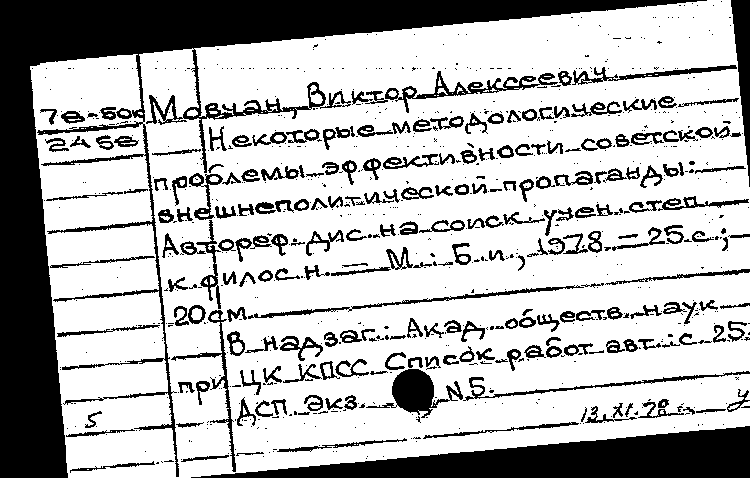 78-50к Мовчан, Виктор Алексеевич
2458 Некоторые методологические
проблемы эффективности советской
внешнеполитической пропаганды:
Автореф. дис. на соиск. учен. степ.
к. филос. н. — М.: Б. и., 1978. — 25 с.;
20 см.
В надзаг.: Акад. обществ. наук
при ЦК КПСС. Список работ авт.: с. 25.
ДСП. Экз. N5.
5 13.XI.78 у